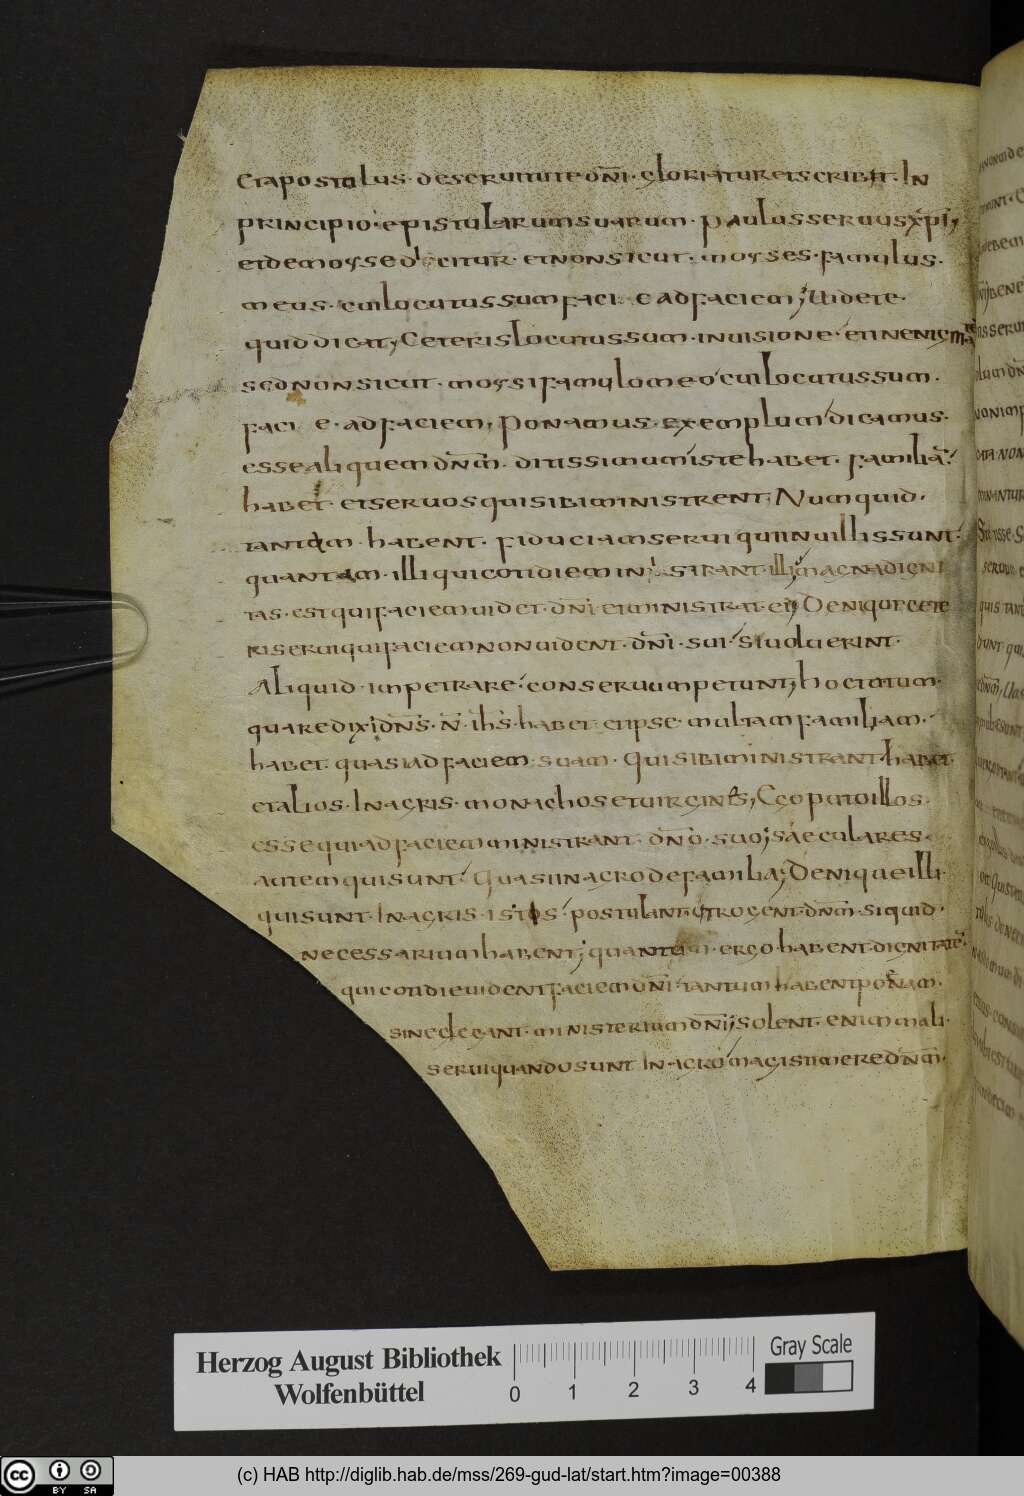 Et apostolus · de seruitute dn̄i · gloriatur et scribit · In
principio · epistularum suarum · paulus seruus xp̄i ;
et de moyse dicitur · et non sicut · moyses · famulus ·
meus · cui locutus sum faci e ad faciem ; Uidete ·
quid dicat ; Ceteris locutus sum · in uisione · et in enigmate
sed non sicut · moysi famulo meo cui locutus sum ·
faci e · ad faciem ; ponamus · exemplum dicamus ·
esse aliquem dn̄m̄ · ditissimum iste habet · familiā
habet · et seruos qui sibi ministrent ; Numquid ·
tantam · habent · fiduciam serui qui in uillis sunt ·
quantam · illi qui cotidie min sirant · illi magna digni
tas · est qui faciem uidet · dn̄i et ministrat · ei ; Denique cete
ris serui qui faciem non uident · dn̄i · sui · si uoluerint ·
Aliquid · impetrare · conseruum petunt ; hoc totum ·
quare dixi dn̄s · n̄ · ih̄s · habet et ipse · multam familiam ·
habet · quasi ad faciem suam · qui sibi ministrant habet
et alios · In agris · monachos et uirgines ; Ego puto illos
esse qui ad faciem ministrant · dn̄o · suo ; saeculares ·
autem qui sunt · quasi in agro de familia ; Denique illi ·
qui sunt · In agris · istos · postulant et rogent · dn̄m̄ · si quid ·
necessarium habent ; quantam · ergo habent dignitatē
qui cotidie uident faciem dn̄i · tantum habent poenam ·
si neglegant · ministerium dn̄i ; solent · enim mali ·
serui quando sunt In agro magis timere dn̄m̄ ·
Herzog August Bibliothek
Wolfenbüttel
0 1 2 3 4
Gray Scale
cc BY SA
(c) HAB http://diglib.hab.de/mss/269-gud-lat/start.htm?image=00388